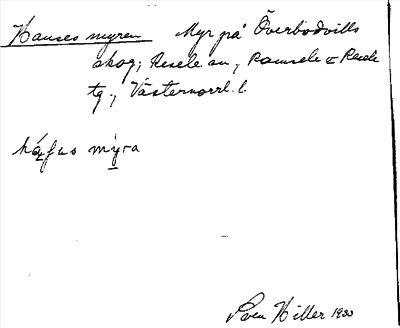 Hanses myren Myr på Överbodvills
skog, Resele sn, Ramsele & Resele
tg., Västernorrl. l.
myra
Sven Hiller 1930